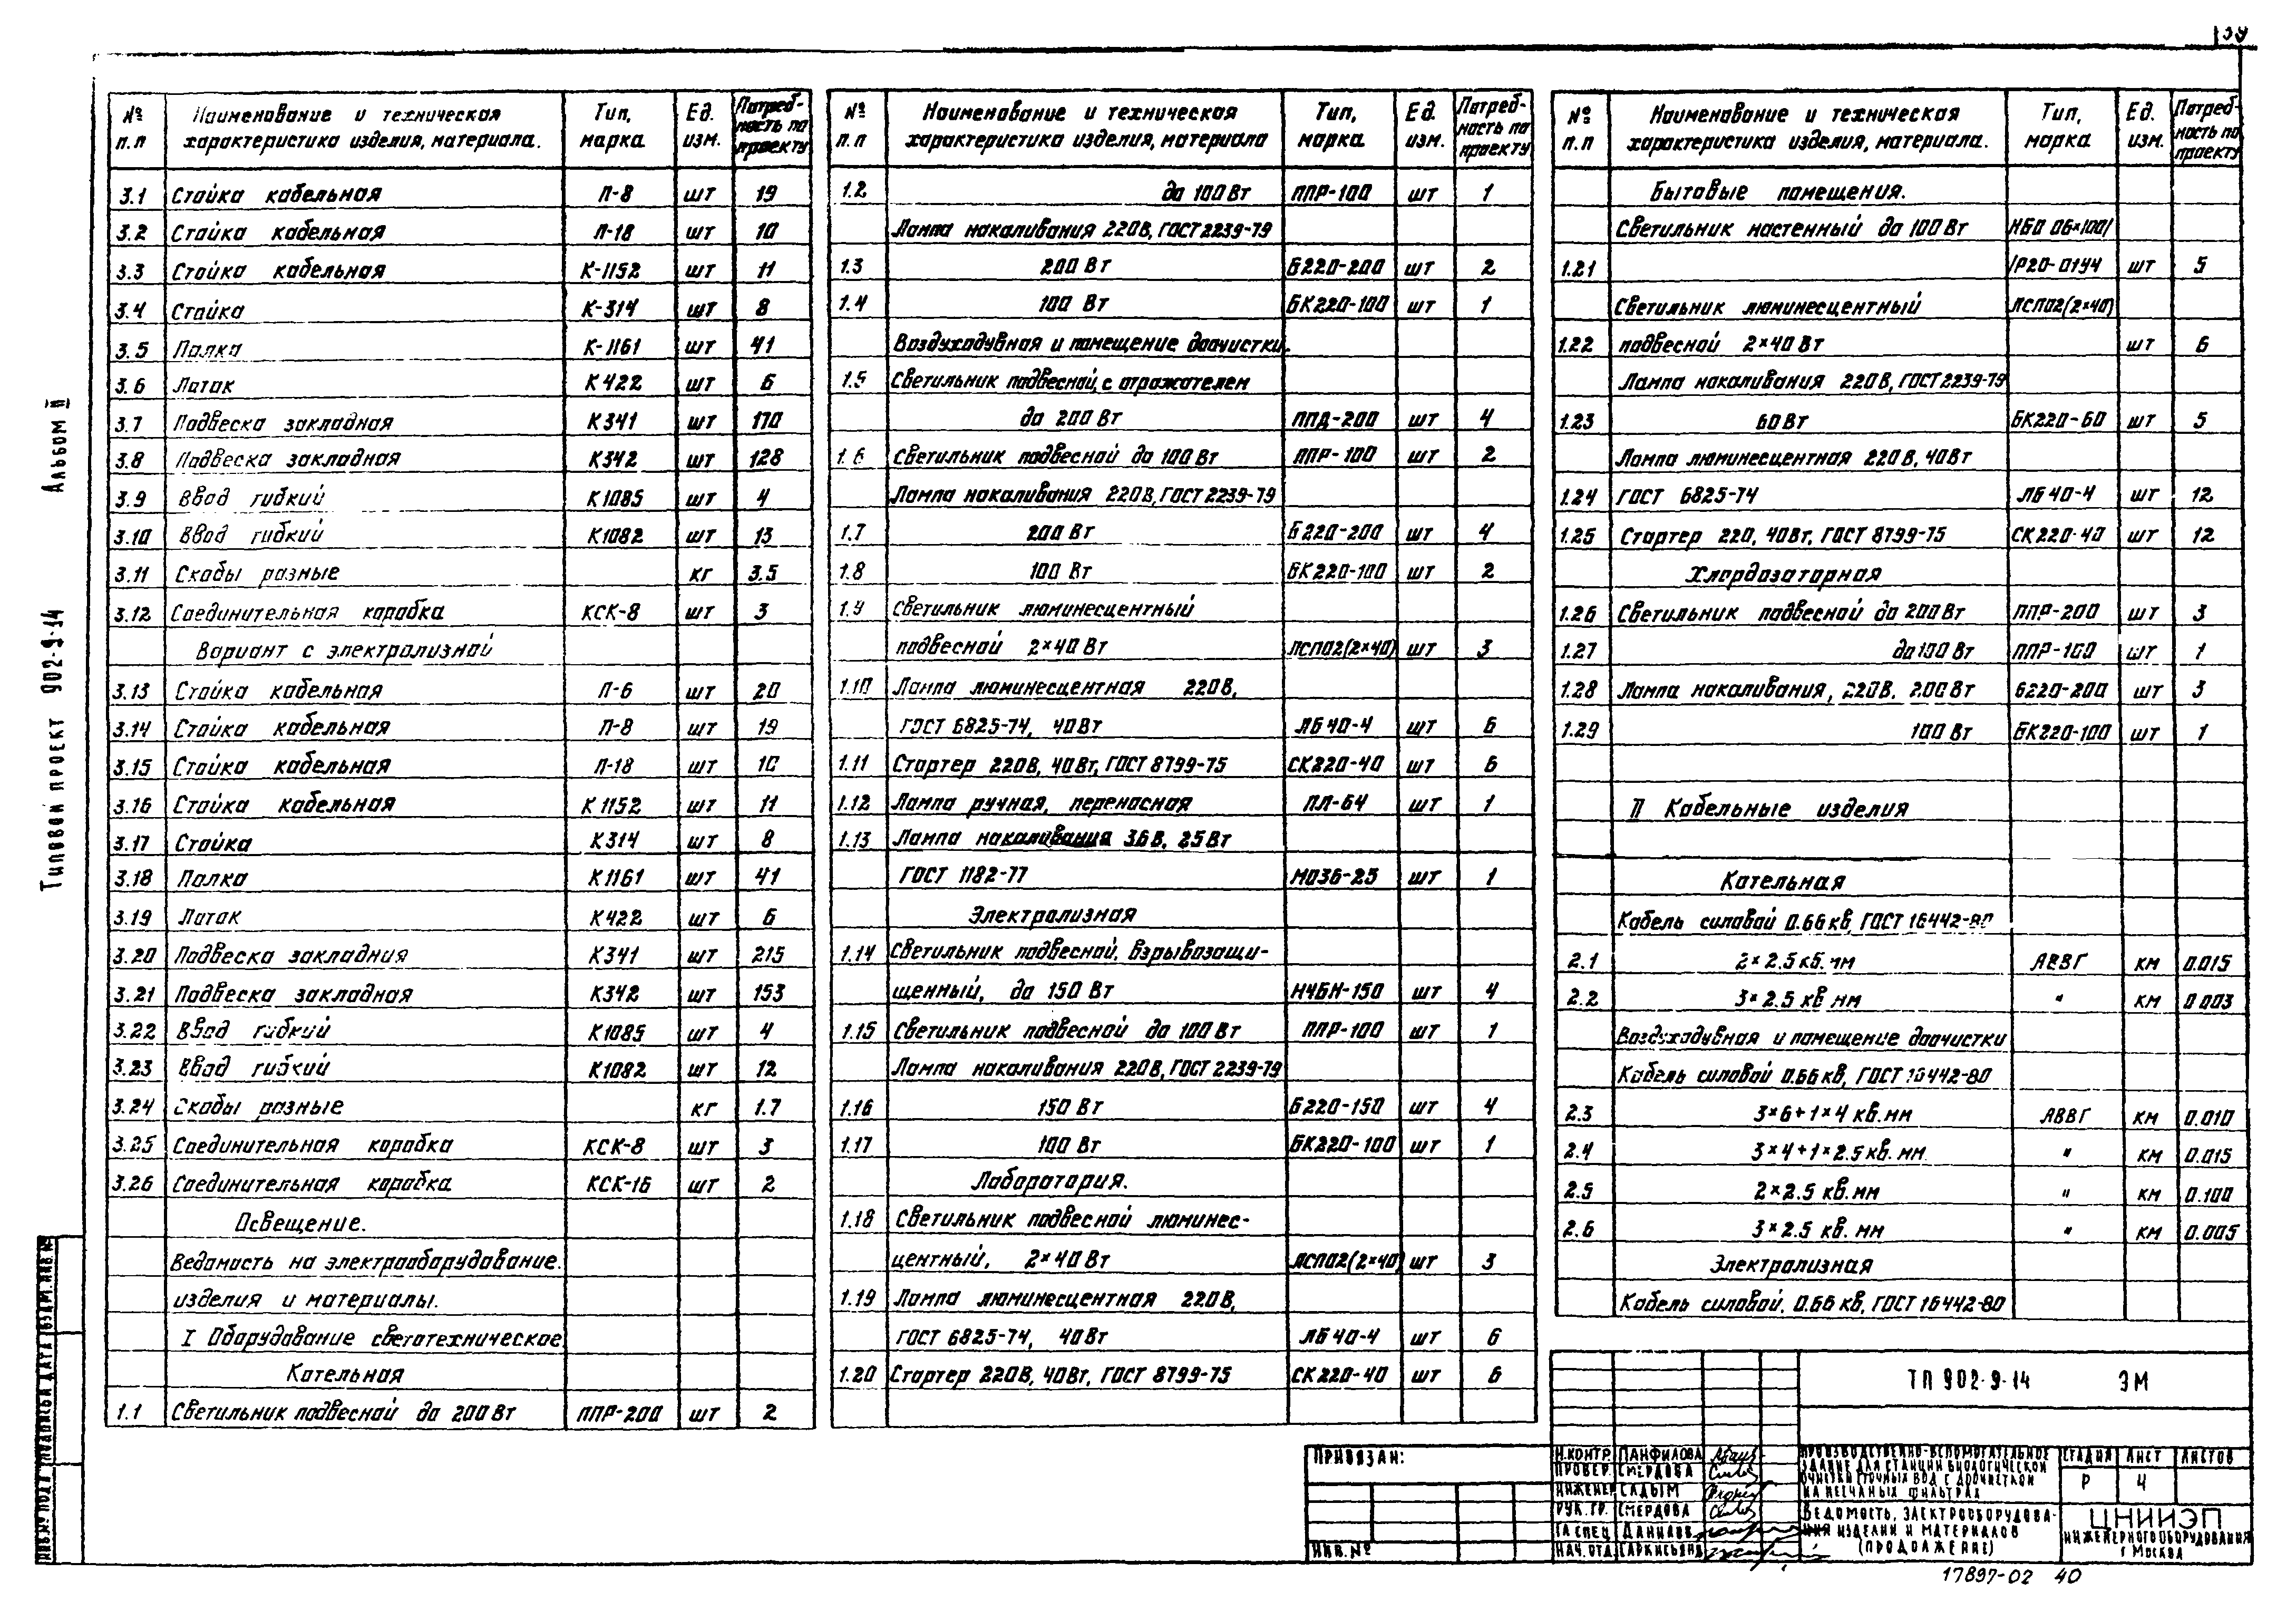 39
Альбом II
Типовой проект 902-9-14
№ п.п | Наименование и техническая характеристика изделия, материала. | Тип, марка | Ед. изм. | Потребность по проекту
3.1 Стойка кабельная П-8 шт 19
3.2 Стойка кабельная П-18 шт 10
3.3 Стойка кабельная К-1152 шт 11
3.4 Стойка К-314 шт 8
3.5 Полка К-1161 шт 41
3.6 Лоток К422 шт 6
3.7 Подвеска закладная К341 шт 170
3.8 Подвеска закладная К342 шт 128
3.9 Ввод гибкий К1085 шт 4
3.10 Ввод гибкий К1082 шт 13
3.11 Скобы разные кг 3.5
3.12 Соединительная коробка КСК-8 шт 3
Вариант с электролизной
3.13 Стойка кабельная П-6 шт 20
3.14 Стойка кабельная П-8 шт 19
3.15 Стойка кабельная П-18 шт 10
3.16 Стойка кабельная К1152 шт 11
3.17 Стойка К314 шт 8
3.18 Полка К1161 шт 41
3.19 Лоток К422 шт 6
3.20 Подвеска закладния К341 шт 215
3.21 Подвеска закладная К342 шт 153
3.22 Ввод гибкий К1085 шт 4
3.23 Ввод гибкий К1082 шт 12
3.24 Скобы разные кг 1.7
3.25 Соединительная коробка КСК-8 шт 3
3.26 Соединительная коробка КСК-16 шт 2
Освещение.
Ведомость на электрооборудование.
изделия и материалы.
I Оборудование светотехническое
Котельная
1.1 Светильник подвесной до 200 Вт ППР-200 шт 2
№ п.п | Наименование и техническая характеристика изделия, материала | Тип, марка | Ед. изм. | Потребность по проекту
1.2 до 100 Вт ППР-100 шт 1
Лампа накаливания 220В, ГОСТ 2239-79
1.3 200 Вт Б220-200 шт 2
1.4 100 Вт БК220-100 шт 1
Воздуходувная и помещение доочистки.
1.5 Светильник подвесной, с отражателем
до 200 Вт ППД-200 шт 4
1.6 Светильник подвесной до 100 Вт ППР-100 шт 2
Лампа накаливания 220В, ГОСТ 2239-79
1.7 200 Вт Б220-200 шт 4
1.8 100 Вт БК220-100 шт 2
1.9 Светильник люминесцентный
подвесной 2×40 Вт ЛСП02(2×40) шт 3
1.10 Лампа люминесцентная 220В,
ГОСТ 6825-74, 40Вт ЛБ40-4 шт 6
1.11 Стартер 220В, 40Вт, ГОСТ 8799-75 СК220-40 шт 6
1.12 Лампа ручная, переносная ПЛ-64 шт 1
1.13 Лампа накаливания 36В, 25Вт
ГОСТ 1182-77 МО36-25 шт 1
Электролизная
1.14 Светильник подвесной, взрывозащи-
щенный, до 150 Вт Н4БН-150 шт 4
1.15 Светильник подвесной до 100 Вт ППР-100 шт 1
Лампа накаливания 220В, ГОСТ 2239-79
1.16 150 Вт Б220-150 шт 4
1.17 100 Вт БК220-100 шт 1
Лаборатория.
1.18 Светильник подвесной люминес-
центный, 2×40 Вт ЛСП02(2×40) шт 3
1.19 Лампа люминесцентная 220В,
ГОСТ 6825-74, 40Вт ЛБ40-4 шт 6
1.20 Стартер 220В, 40Вт, ГОСТ 8799-75 СК220-40 шт 6
№ п.п | Наименование и техническая характеристика изделия, материала. | Тип, марка | Ед. изм. | Потребность по проекту
Бытовые помещения.
Светильник настенный до 100 Вт НБО 06×100/
1.21 /Р20-01У4 шт 5
Светильник люминесцентный ЛСП02(2×40)
1.22 подвесной 2×40 Вт шт 6
Лампа накаливания 220В, ГОСТ 2239-79
1.23 60 Вт БК220-60 шт 5
Лампа люминесцентная 220В, 40Вт
1.24 ГОСТ 6825-74 ЛБ40-4 шт 12
1.25 Стартер 220, 40Вт, ГОСТ 8799-75 СК220-40 шт 12
Хлордозаторная
1.26 Светильник подвесной до 200 Вт ППР-200 шт 3
1.27 до 100 Вт ППР-100 шт 1
1.28 Лампа накаливания, 220В, 200 Вт Б220-200 шт 3
1.29 100 Вт БК220-100 шт 1
II Кабельные изделия
Котельная
Кабель силовой 0.66 кв, ГОСТ 16442-80
2.1 2×2.5 кв. мм АВВГ км 0.015
2.2 3×2.5 кв мм " км 0.003
Воздуходувная и помещение доочистки
Кабель силовой 0.66 кв, ГОСТ 16442-80
2.3 3×6+1×4 кв. мм АВВГ км 0.010
2.4 3×4+1×2.5 кв. мм " км 0.015
2.5 2×2.5 кв. мм " км 0.100
2.6 3×2.5 кв. мм " км 0.005
Электролизная
Кабель силовой, 0.66 кв, ГОСТ 16442-80
ТП 902-9-14 ЭМ
Привязан:
Инв. №
Н.контр. Панфилова
Провер. Смердова
Инженер Садым
Рук. гр. Смердова
Гл спец Данилов
Нач. отд Саркисьянц
Производственно-вспомогательное
здание для станции биологической
очистки сточных вод с доочисткой
на песчаных фильтрах
Стадия Лист Листов
Р 4
Ведомость, электрооборудова-
ния изделий и материалов
(продолжение)
ЦНИИЭП
инженерного оборудования
г Москва
Инв.№ подл. Подпись и дата Взам.инв.№
17897-02 40